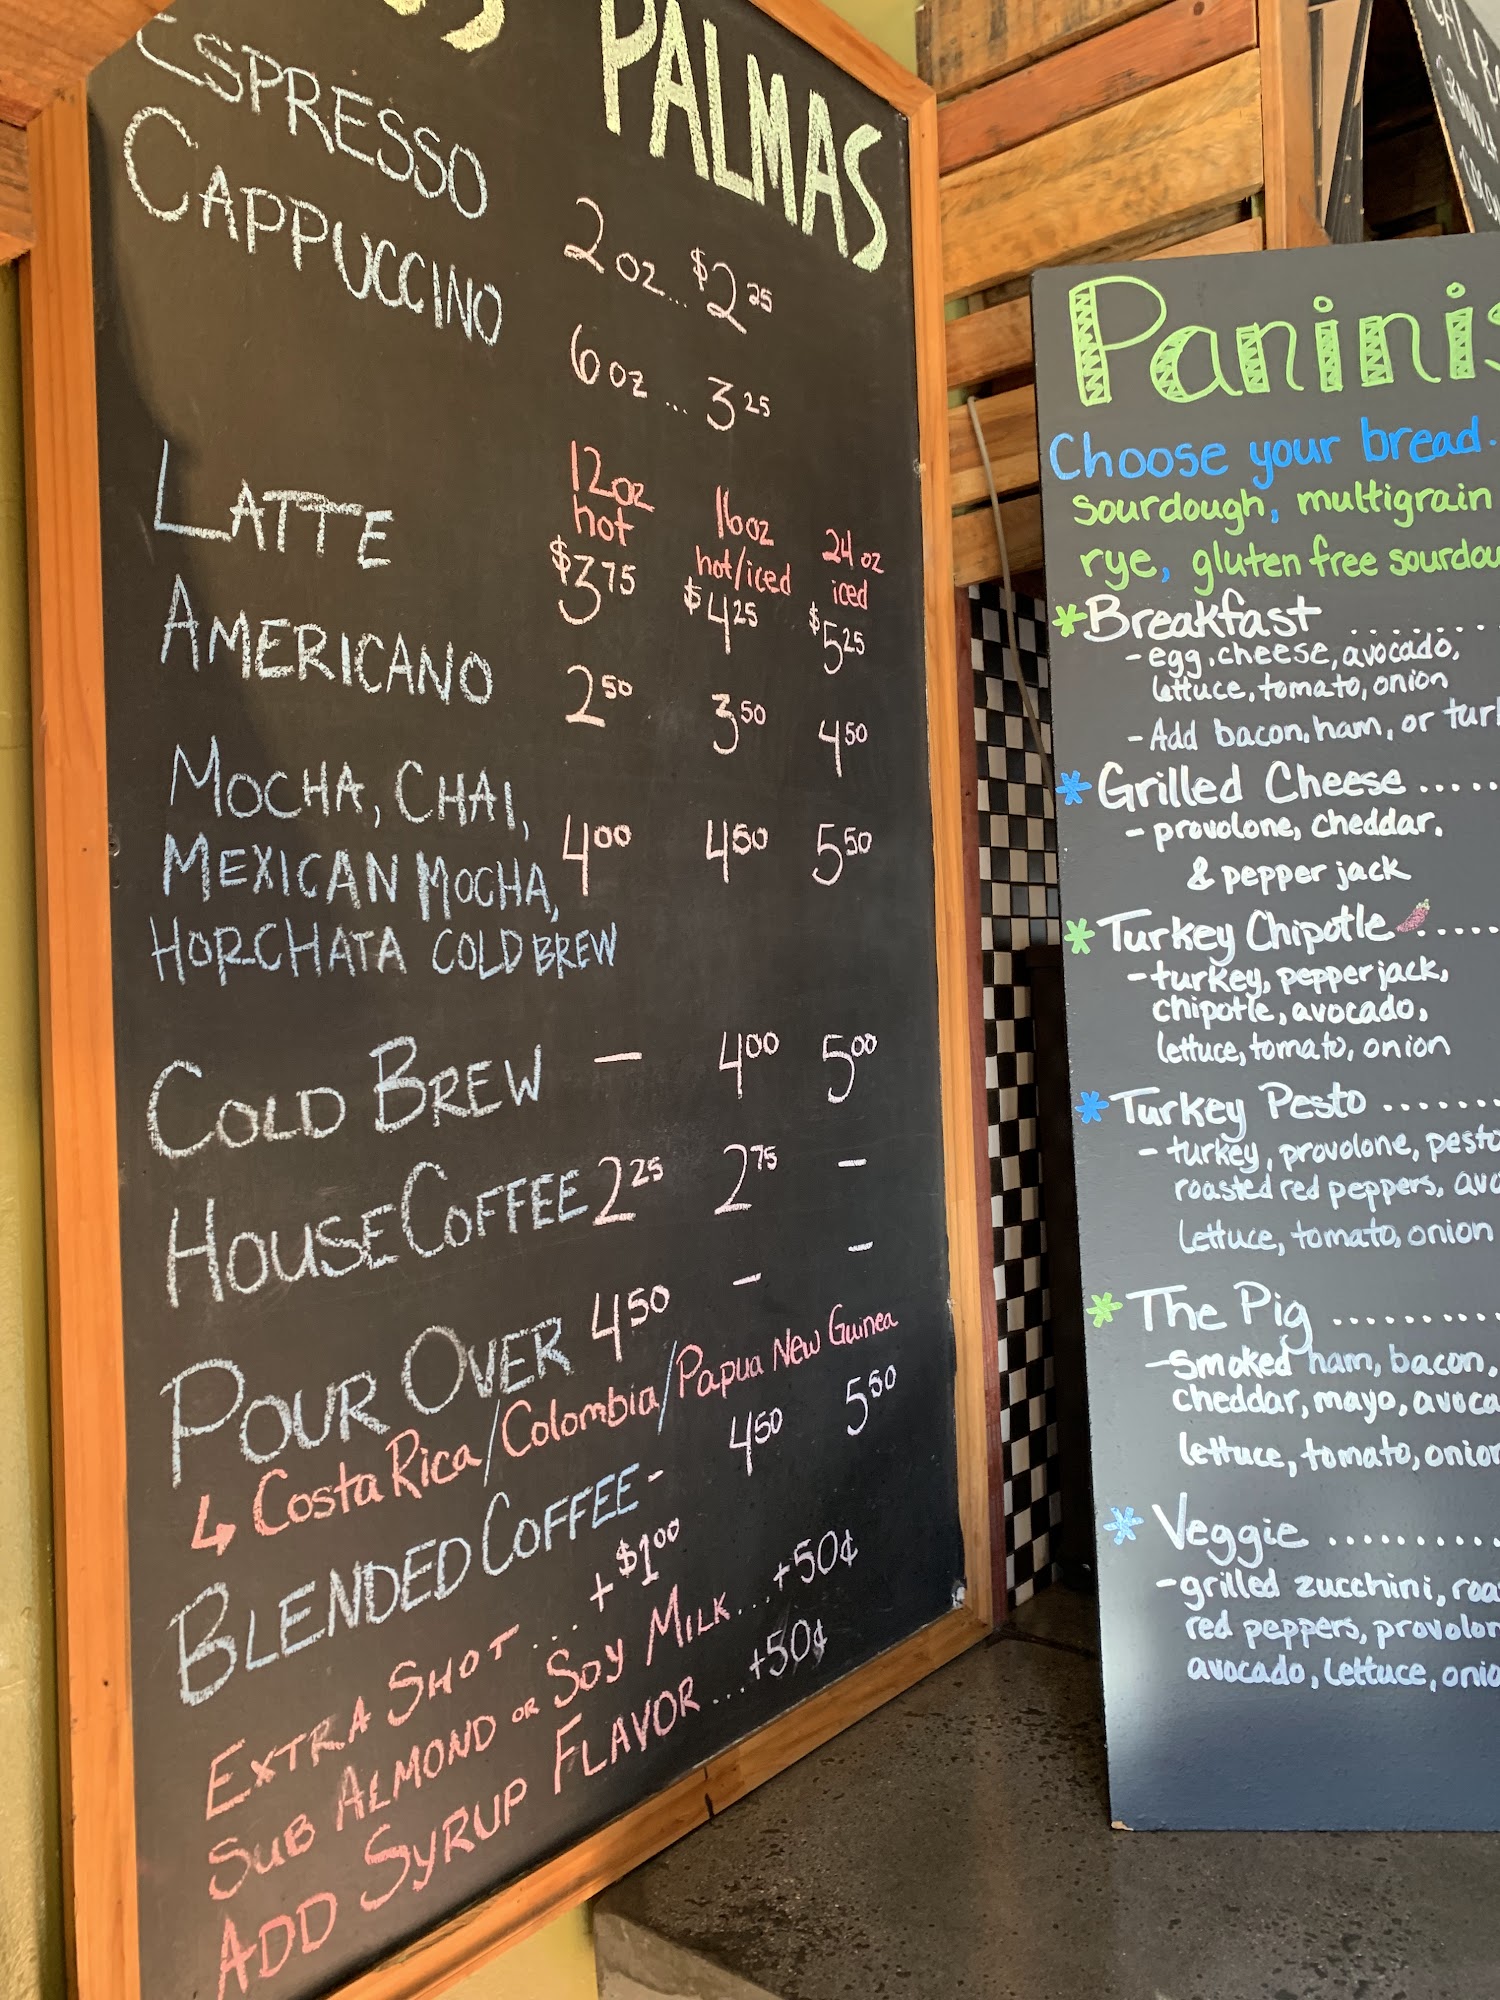 PALMAS
ESPRESSO 2 oz... $2.25
CAPPUCCINO 6 oz ... 3.25
12oz hot 16oz hot/iced 24 oz iced
LATTE $3.75 $4.25 $5.25
AMERICANO 2.50 3.50 4.50
MOCHA, CHAI,
MEXICAN MOCHA, 4.00 4.50 5.50
HORCHATA COLD BREW
COLD BREW — 4.00 5.00
HOUSE COFFEE 2.25 2.75 —
POUR OVER 4.50 — —
↳ Costa Rica/Colombia/Papua New Guinea
BLENDED COFFEE - 4.50 5.50
EXTRA SHOT ... +$1.00
SUB ALMOND OR SOY MILK... +50¢
ADD SYRUP FLAVOR ... +50¢
Paninis
Choose your bread.
sourdough, multigrain
rye, gluten free
* Breakfast .......
- egg, cheese, avocado,
lettuce, tomato, onion
- Add bacon, ham, or
* Grilled Cheese .....
- provolone, cheddar,
& pepper jack
* Turkey Chipotle .....
- turkey, pepper jack,
chipotle, avocado,
lettuce, tomato, onion
* Turkey Pesto .......
- turkey, provolone, pesto
roasted red peppers,
lettuce, tomato, onion
* The Pig .........
- smoked ham, bacon,
cheddar, mayo,
lettuce, tomato, onion
* Veggie .........
- grilled zucchini,
red peppers,
avocado, lettuce,